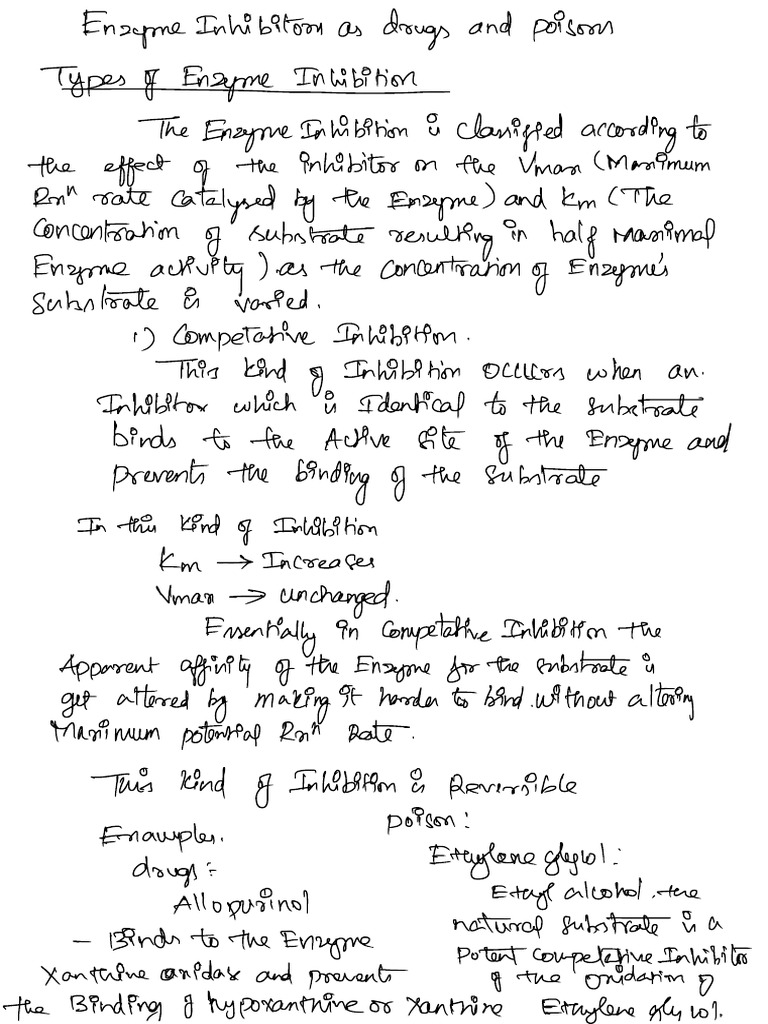 Enzyme Inhibitors as drugs and poisons
Types of Enzyme Inhibition
The Enzyme Inhibition is classified according to
the effect of the inhibitor on the Vmax (Maximum
Rxnⁿ rate catalysed by the Enzyme) and Km (The
Concentration of substrate resulting in half Maximal
Enzyme activity) as the concentration of Enzyme's
Substrate is varied.
1) Competative Inhibition.
This kind of Inhibition occurs when an
Inhibitor which is Identical to the substrate
binds to the Active Site of the Enzyme and
prevents the binding of the substrate
In this kind of Inhibition
Km → Increases
Vmax → unchanged.
Essentially in Competative Inhibition the
Apparent affinity of the Enzyme for the substrate is
get altered by making it harder to bind. without altering
Maximum potential Rxnⁿ Rate.
This kind of Inhibition is Reversible
Examples.
drugs:-
Allopurinol
- Binds to the Enzyme
Xanthine oxidase and prevents
the Binding of hypoxanthine or xanthine
poison:
Ethylene glycol:
Ethyl alcohol. the
natural substrate is a
Potent competetive Inhibitor
of the oxidation of
Ethylene glycol.